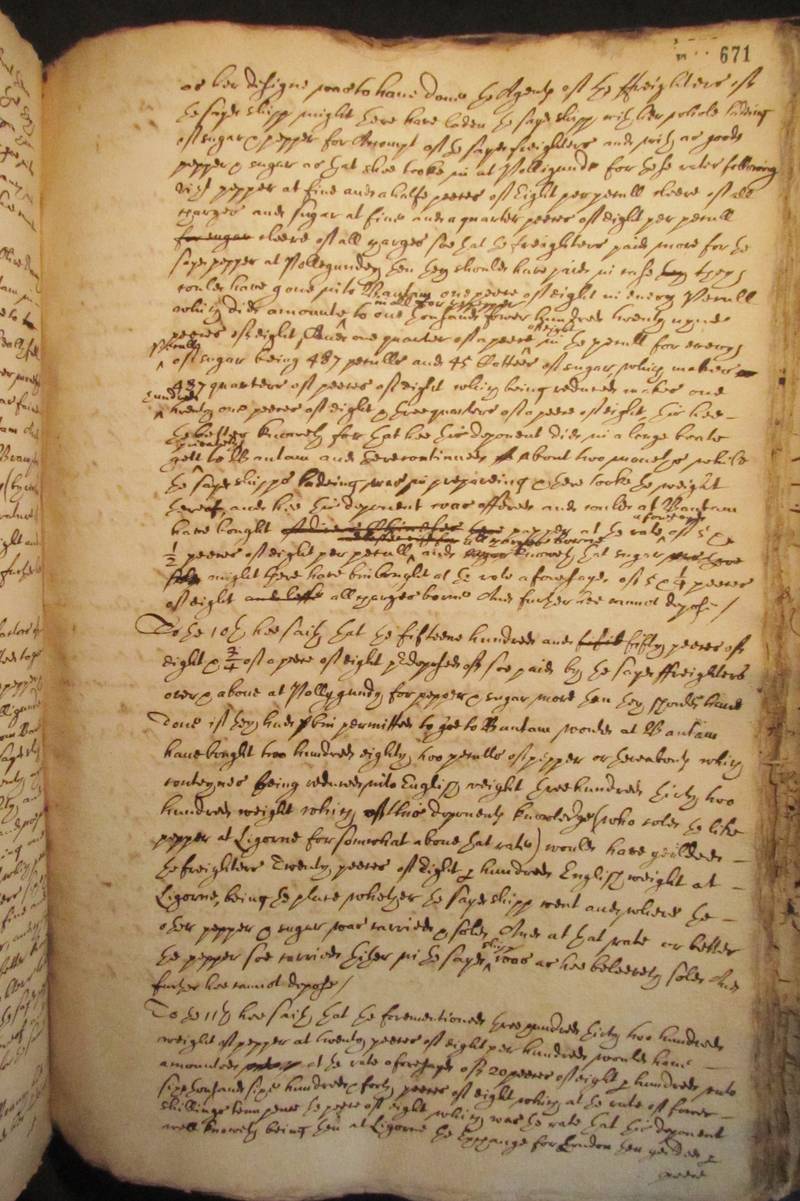 671
as her designe was to have done the Agents of the ffreighters of
the sayd shipp might there have laden the sayd shipp with her whole lading
of sugar & pepper for Accompt of the sayd freighters and with as good
pepper & sugar as that shee tooke in at Pollegundy for these rates following
vizt pepper at five and a halfe peeces of Eight per pecull cleere of all
charges and sugar at five and a quarter peeces of eight per pecull
for sugar cleere of all charges soe that the freighters paid more for the
sayd pepper at Pollegundy then they should have paid in case they
could have gone into Bantam one peece of eight in every Pecull
in all for the pepper
which did amounte to one thousand fower hundred twenty nyne
peeces of eight, And one quarter of a peece of eight in the pecull for every
Pecull
of sugar being 487 peculls and 45 Cattees of sugar which makes
487 quarters of peeces of eight which being reduced makes one
hundred
twenty one peeces of eight & three quarters of a peece of eight, this hee
the better knoweth for that hee this deponent did in a large boate
gett to Bantam and there continued about two moneths while
the sayd shipps ladeing was in prepareing & there tooke the weight
thereof, and hee this deponent was offered and could at Bantam
have bought pepper at the rate aforesayd of 5 &
½ peeces of eight per pecull, all charges borne and knoweth that sugar
might there have bin bought at the rate aforesayd of 5 & ¼ peeces
of eight and lesse all charges borne And further hee cannot depose /
To the 10th hee saith that the fifteene hundred and fiftie fifty peeces of
eight & ¾ of a peece of eight predeposed of soe paid by the sayd ffreighters
over & above at Pollygundy for pepper & sugar more then they should have
done if they had bin permitted to goe to Bantam would at Bantam
have bought two hundred eighty two peculls of pepper or thereabouts which
conteynes being reduced into English weight three hundred thirty two
hundred weight which of this deponents knowledge (who sold the like
pepper at Ligorne for somewhat above that rate) would have yeilded
the freighters Twenty peeces of eight per hundred English weight at
Ligorne, being the place whether the sayd shipp went and where the
other pepper & sugar was carried & sold, And at that rate or better
the pepper soe carried thither in the sayd shipp was as hee beleeveth sold And
further hee cannot depose /
To the 11th hee saith that the forementioned three hundred thirty two hundred
weight of pepper at twenty peeces of eight per hundred would have
amounted at the rate aforesayd of 20 peeces of eight per hundred into
sixe thousand sixe hundred & forty peeces of eight which at the rate of fower
shillings tenn pence the peece of eight which was the rate that this deponent
well knoweth being then at Ligorne the Exchange for London then yeilded per
peece